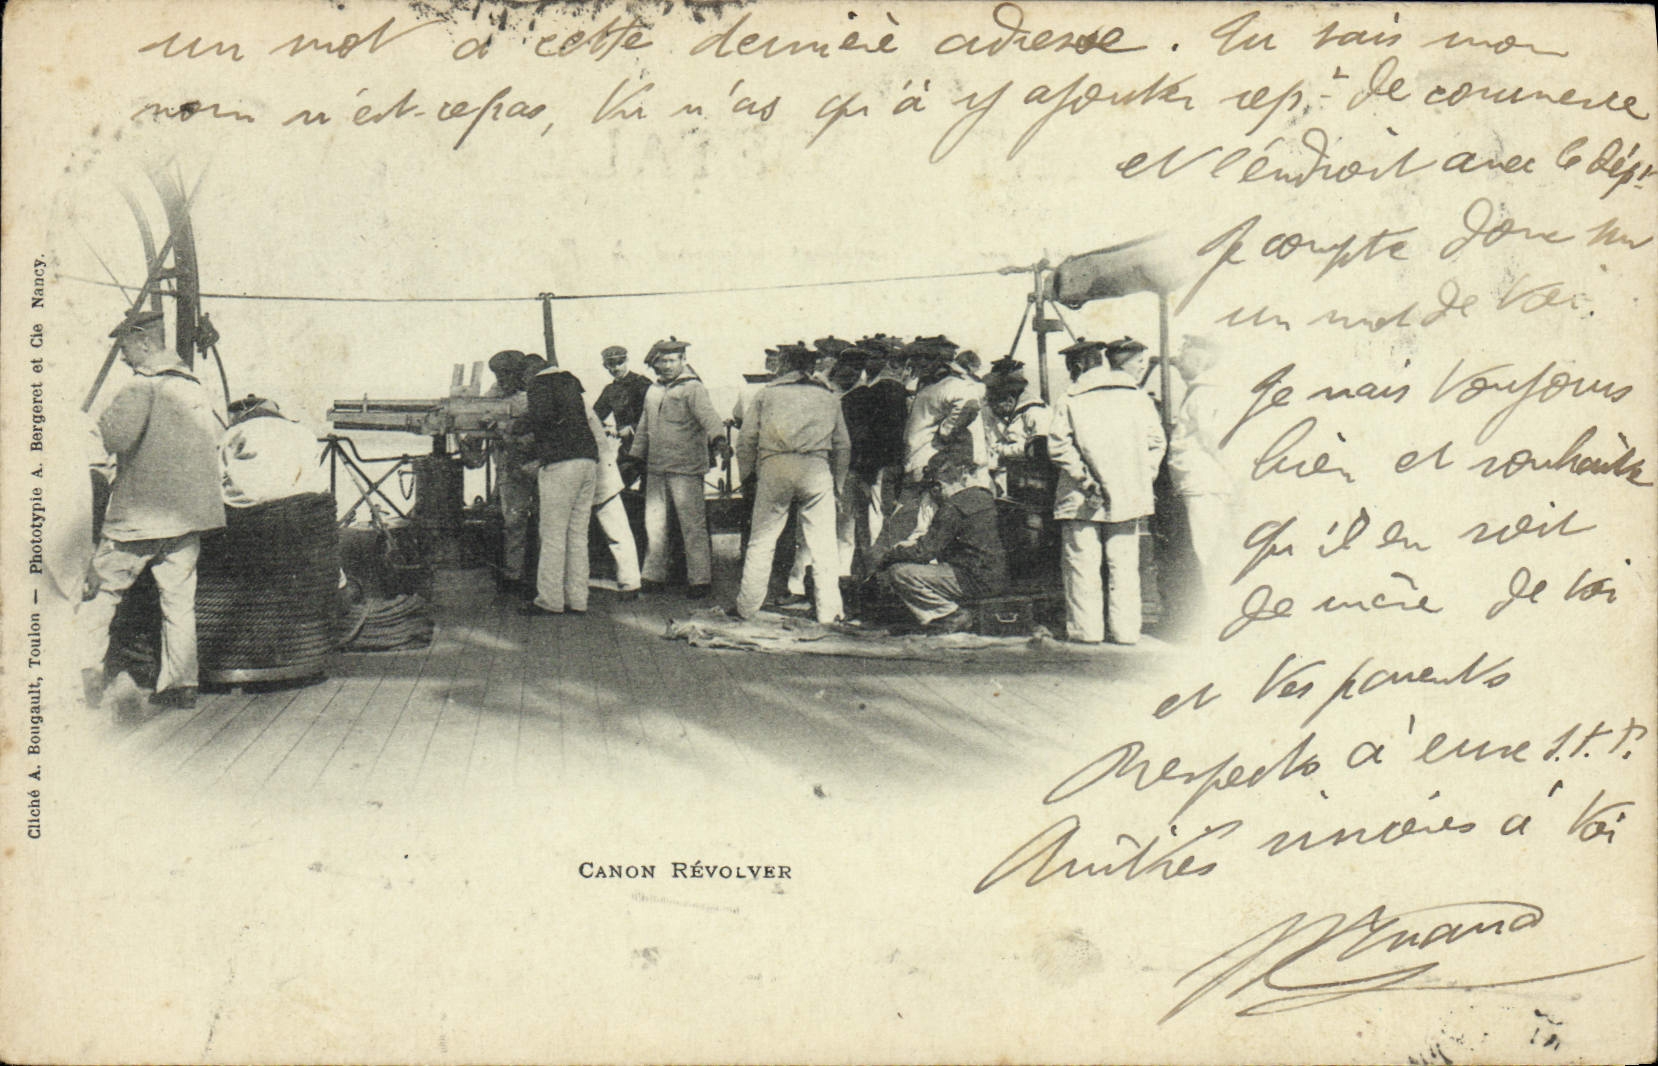 un mot à cette dernière adresse. Tu sais mon
nom n'est-ce pas, tu n'as qu'à y ajouter rep.t de commerce
et l'endroit avec le dép.t
Je compte donc sur
un mot de toi.
Je vais toujours
bien et souhaite
qu'il en soit
de même de toi
et tes parents
Respects à eux S.T.P.
Amitiés sincères à toi
CANON RÉVOLVER
Cliché A. Bougault, Toulon — Phototypie A. Bergeret et Cie Nancy.